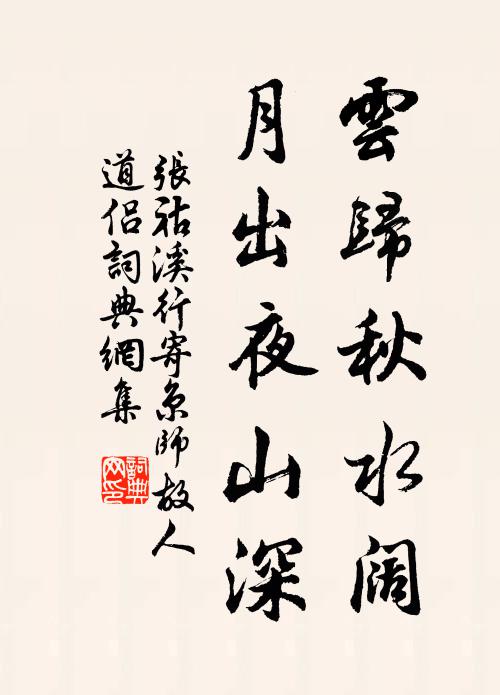 雲歸秋水闊
月出夜山深
張祜溪行寄京師故人
道侶詞典網集
詞典网印